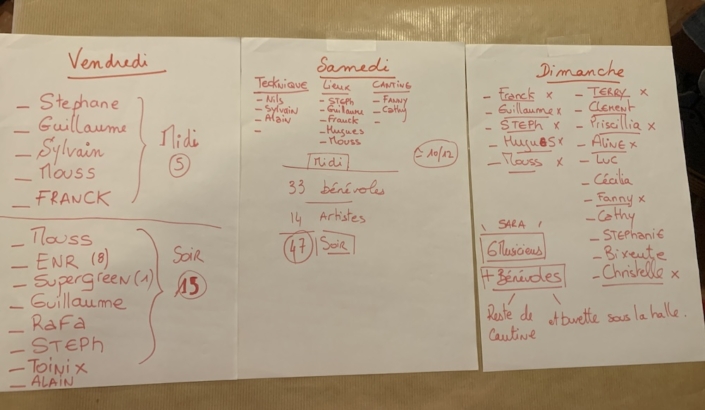 Vendredi
_ Stephane
_ Guillaume
_ Sylvain
_ Mouss
_ FRANCK
Midi
5
_ Mouss
_ ENR (8)
_ SuperGreen (1)
_ Guillaume
_ RaFa
_ STEPh
_ Toinix
_ ALAIN
SOIR
15
Samedi
Technique
- Nils
- Sylvain
- Alain
-
Lieux
- STEPh
- Guillaume
- Franck
- Hugues
- Mouss
CANTINE
- FANNY
- Cathy
-
Midi
≃ 10/12
33 bénévoles
14 Artistes
47 Soir
Dimanche
- Franck x
- Guillaume x
- STEPh x
- Hugues x
- Mouss x
- TERRY x
- CLEMENT
- Priscillia x
- ALINE x
- Luc
- Cécilia
- Fanny x
- Cathy
- STEPhANIE
- Bixente
- Christelle x
\ SARA /
6 Musiciens
+ Bénévoles
Reste de cantine
et buvette sous la halle.